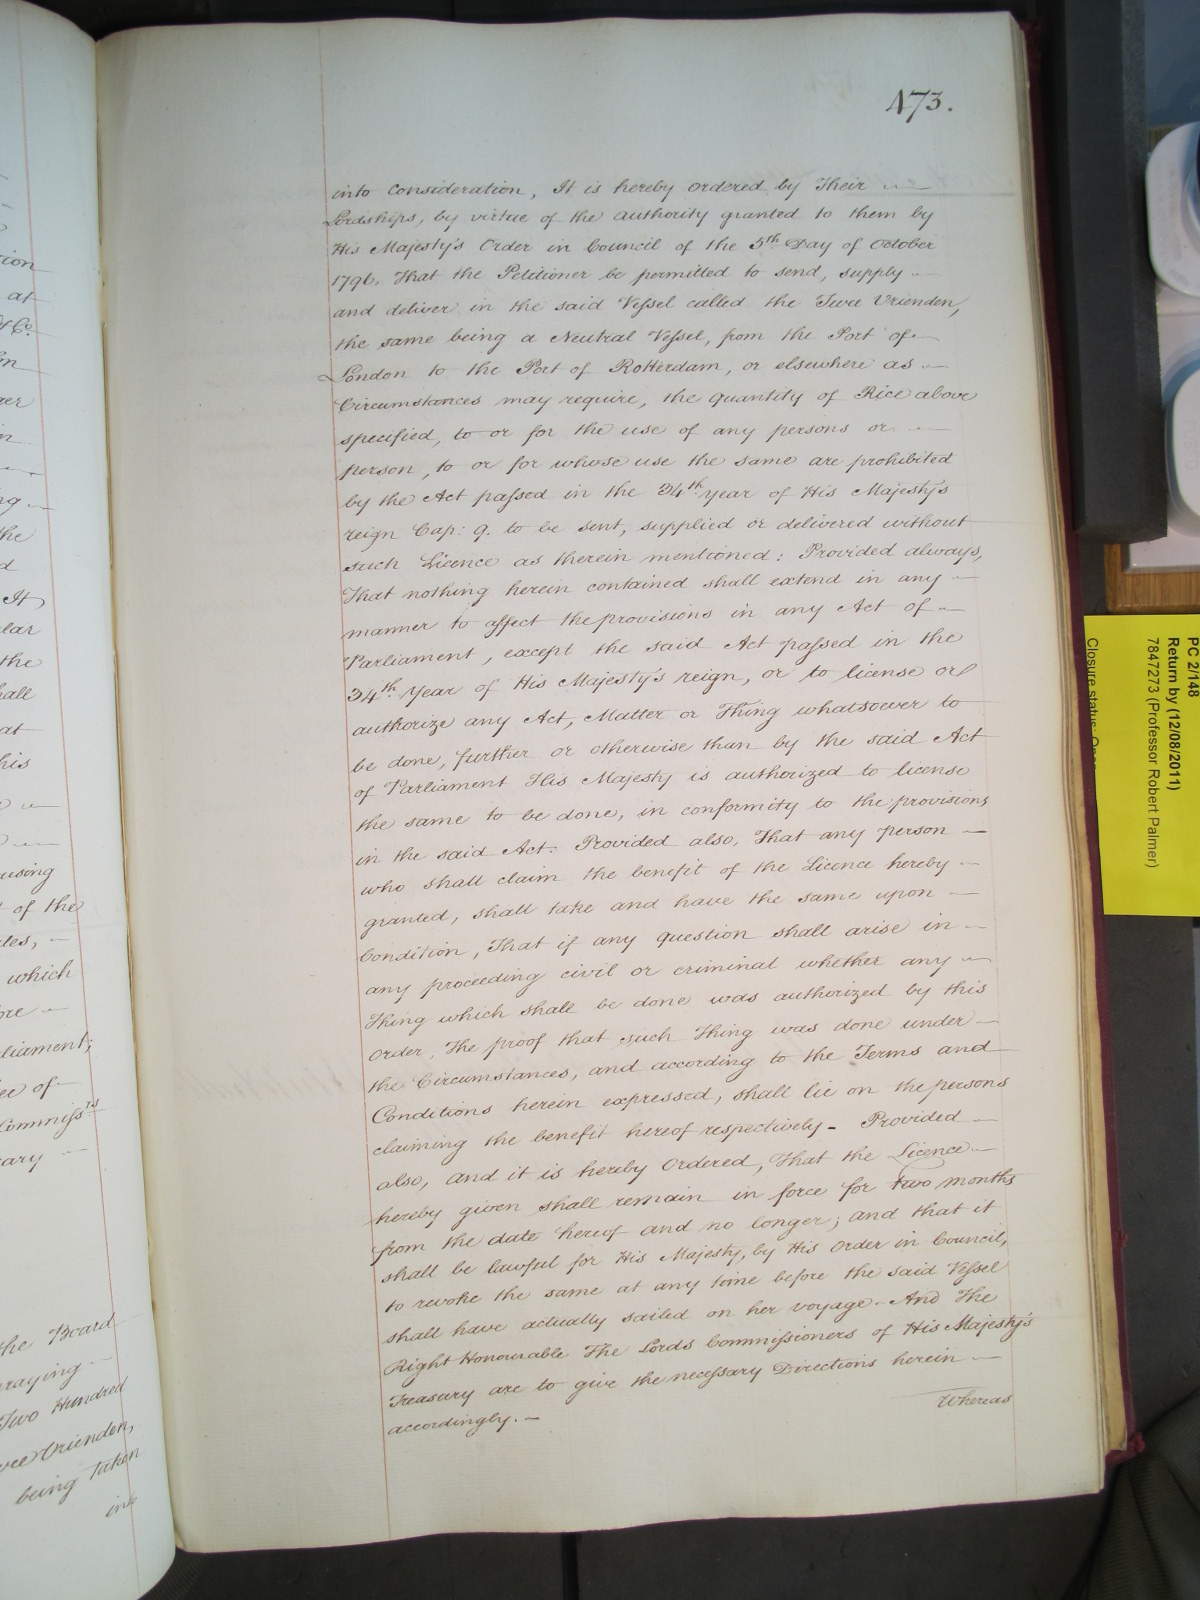 473.
into Consideration, It is hereby ordered by Their
Lordships, by virtue of the authority granted to them by
His Majesty's Order in Council of the 5th Day of October
1796. That the Petitioner be permitted to send, supply
and deliver in the said Vessel called the Twee Vrienden,
the same being a Neutral Vessel, from the Port of
London to the Port of Rotterdam, or elsewhere as
Circumstances may require, the quantity of Rice above
specified, to or for the use of any persons or
person, to or for whose use the same are prohibited
by the Act passed in the 34th year of His Majesty's
reign Cap: 9. to be sent, supplied or delivered without
such Licence as therein mentioned: Provided always,
That nothing herein contained shall extend in any
manner to affect the provisions in any Act of
Parliament, except the said Act passed in the
34th Year of His Majesty's reign, or to license or
authorize any Act, Matter or Thing whatsoever to
be done, further or otherwise than by the said Act
of Parliament His Majesty is authorized to license
the same to be done, in conformity to the provisions
in the said Act: Provided also, That any person
who shall claim the benefit of the Licence hereby
granted, shall take and have the same upon
Condition, That if any question shall arise in
any proceeding civil or criminal whether any
Thing which shall be done was authorized by this
Order, The proof that such Thing was done under
the Circumstances, and according to the Terms and
Conditions herein expressed, shall lie on the persons
claiming the benefit hereof respectively - Provided
also, and it is hereby Ordered, That the Licence
hereby given shall remain in force for two months
from the date hereof and no longer; and that it
shall be lawful for His Majesty, by His Order in Council,
to revoke the same at any time before the said Vessel
shall have actually sailed on her voyage - And The
Right Honourable The Lords Commissioners of His Majesty's
Treasury are to give the necessary Directions herein
accordingly. -
Whereas
at
the
It
the
at
his
of the
which
of
the Board
Two Hundred
Vrienden,
being taken
into
PC 2/148
Return by (12/08/2011)
7847273 (Professor Robert Palmer)
Closure status: